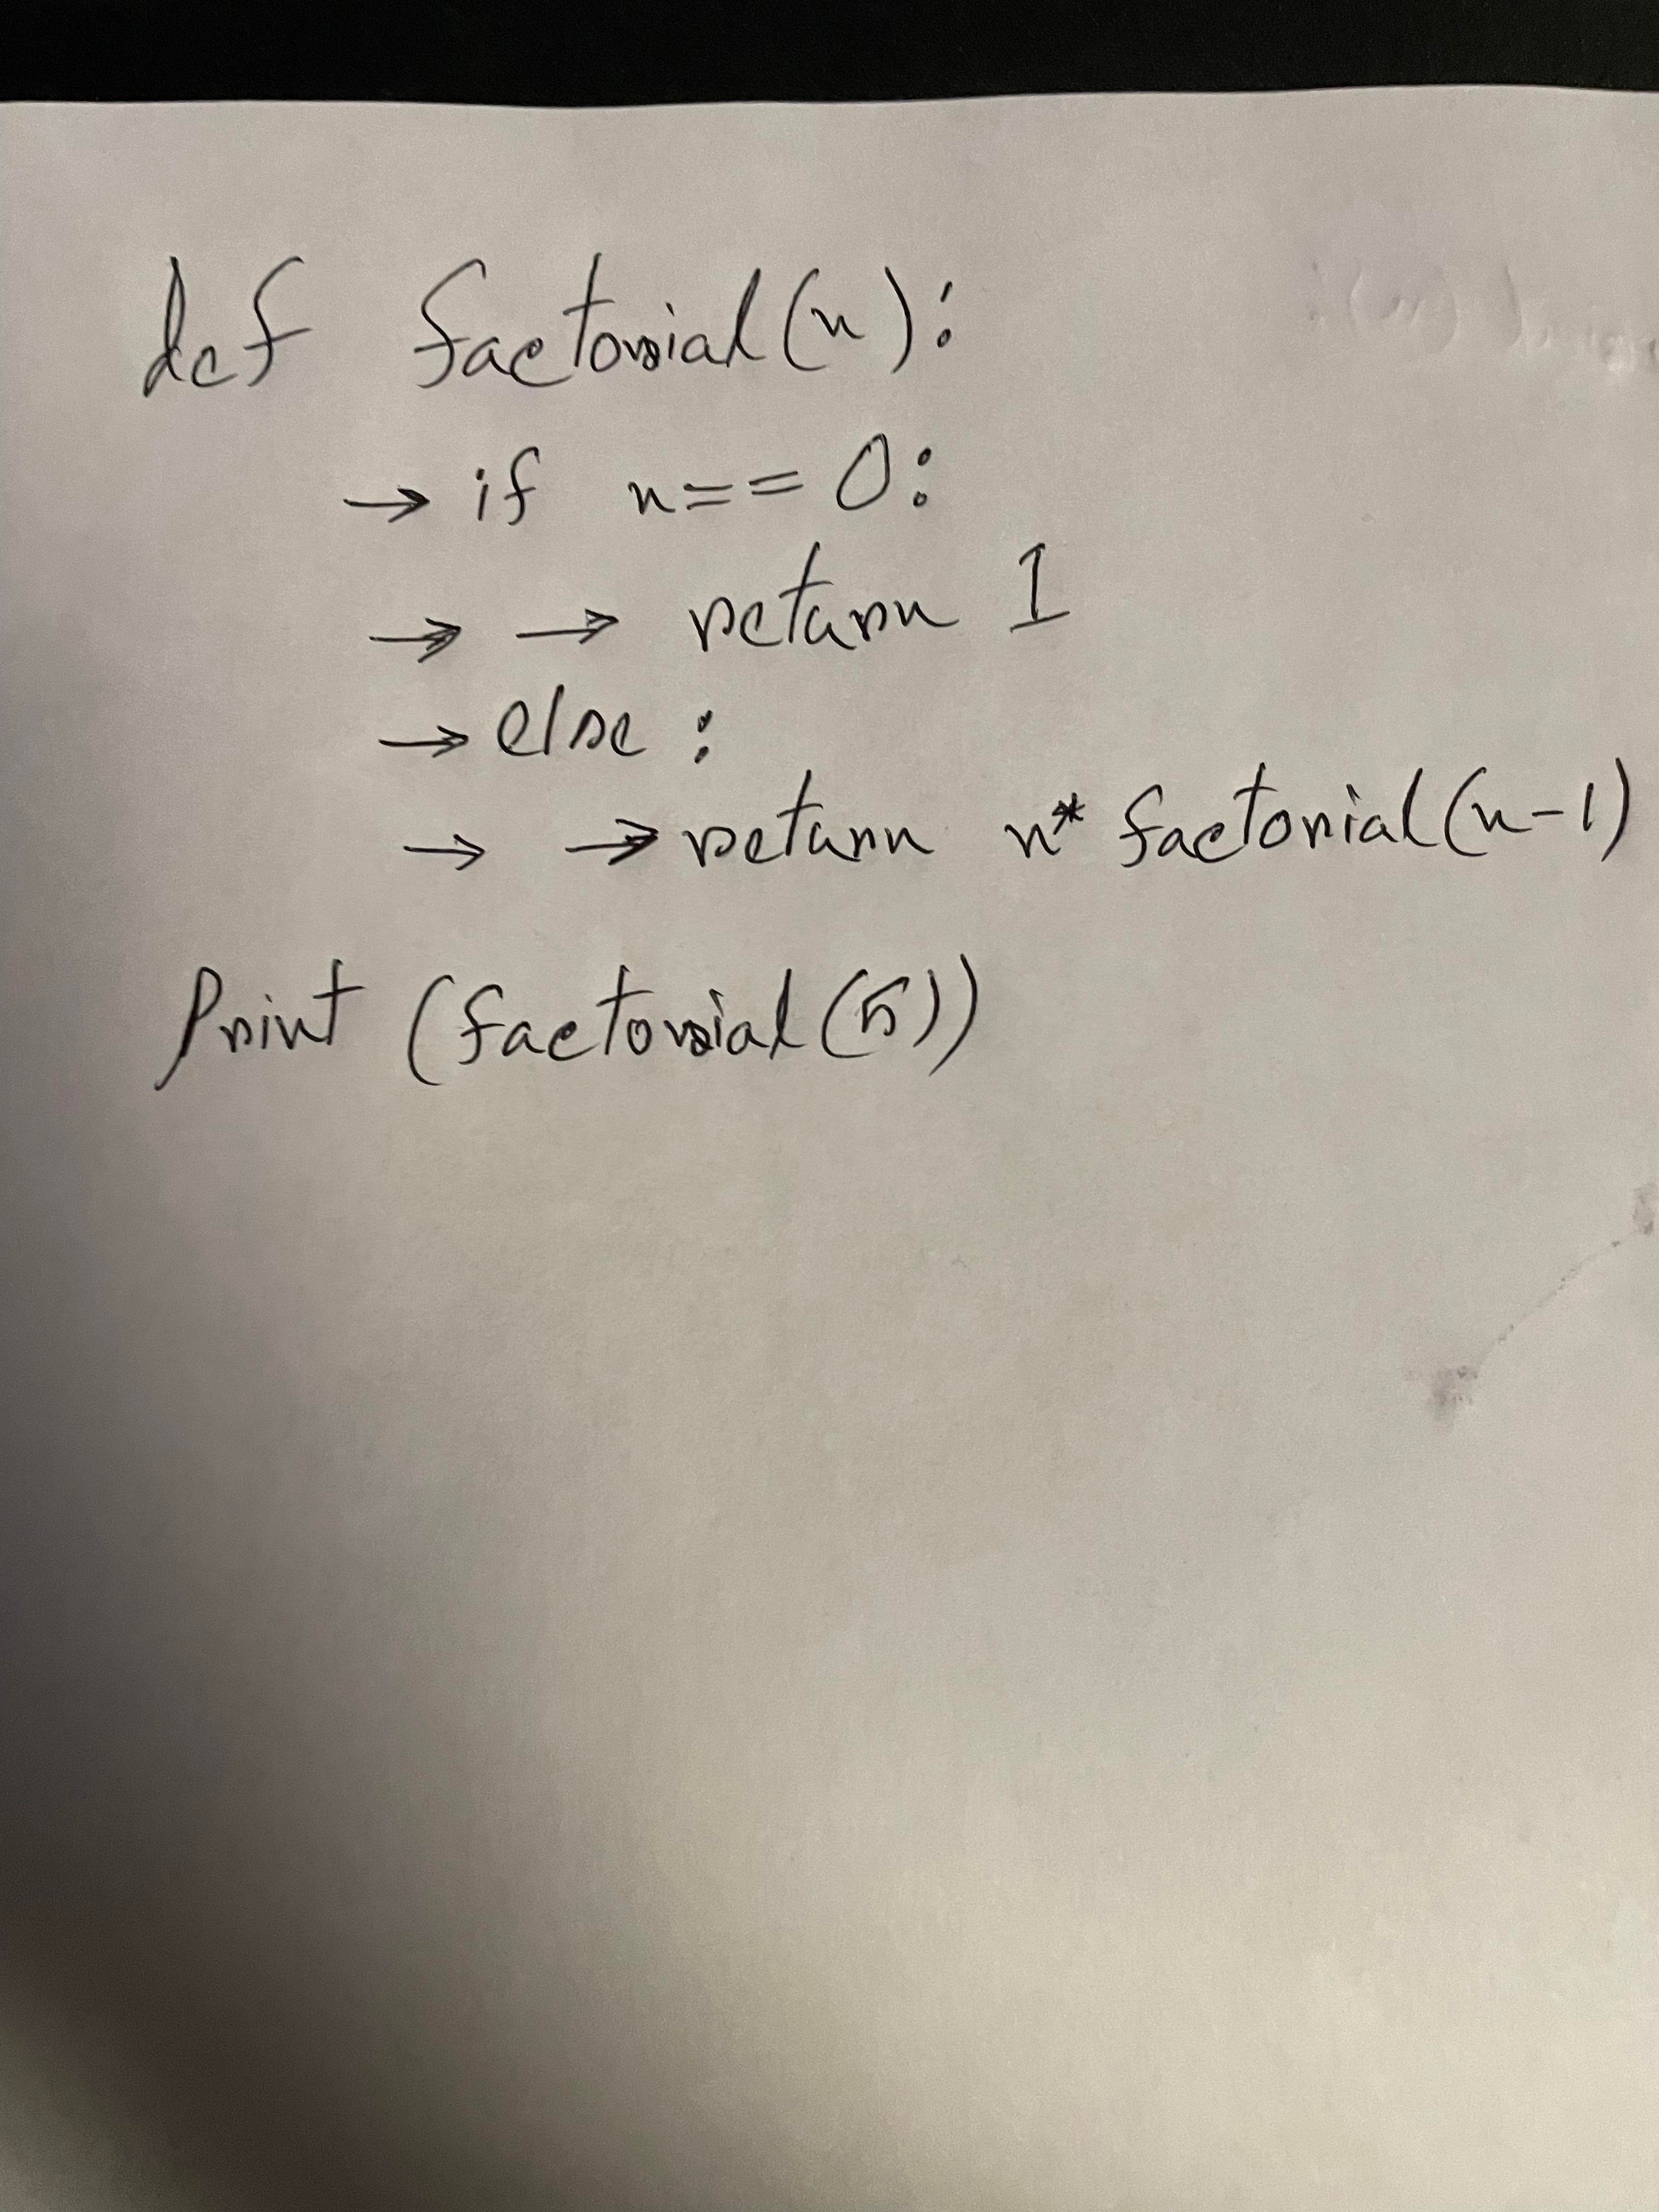 def factorial(n):
→ if n == 0:
→ → return 1
→ else :
→ → return n* factorial(n-1)
Print (factorial(5))